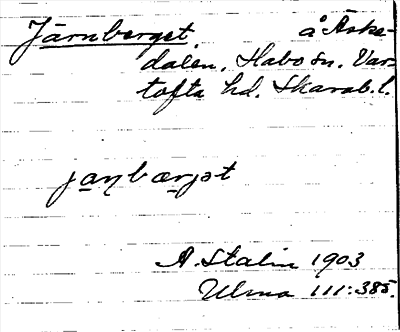 Järnberget. å Äske-
dalen. Habo sn. Var-
tofta hd. Skarab. l.
jaṇbærjət
A. Stalin 1903
Ulma 111:385.